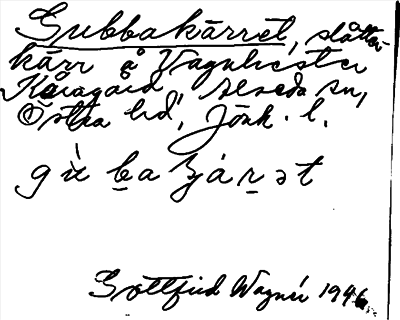 Gubbakärret, slåtter-
kärr å Vagnhester
Kåragård, Alseda sn,
Östra hd, Jönk. l.
gùbaʒárət
Gottfrid Wagnér 1946